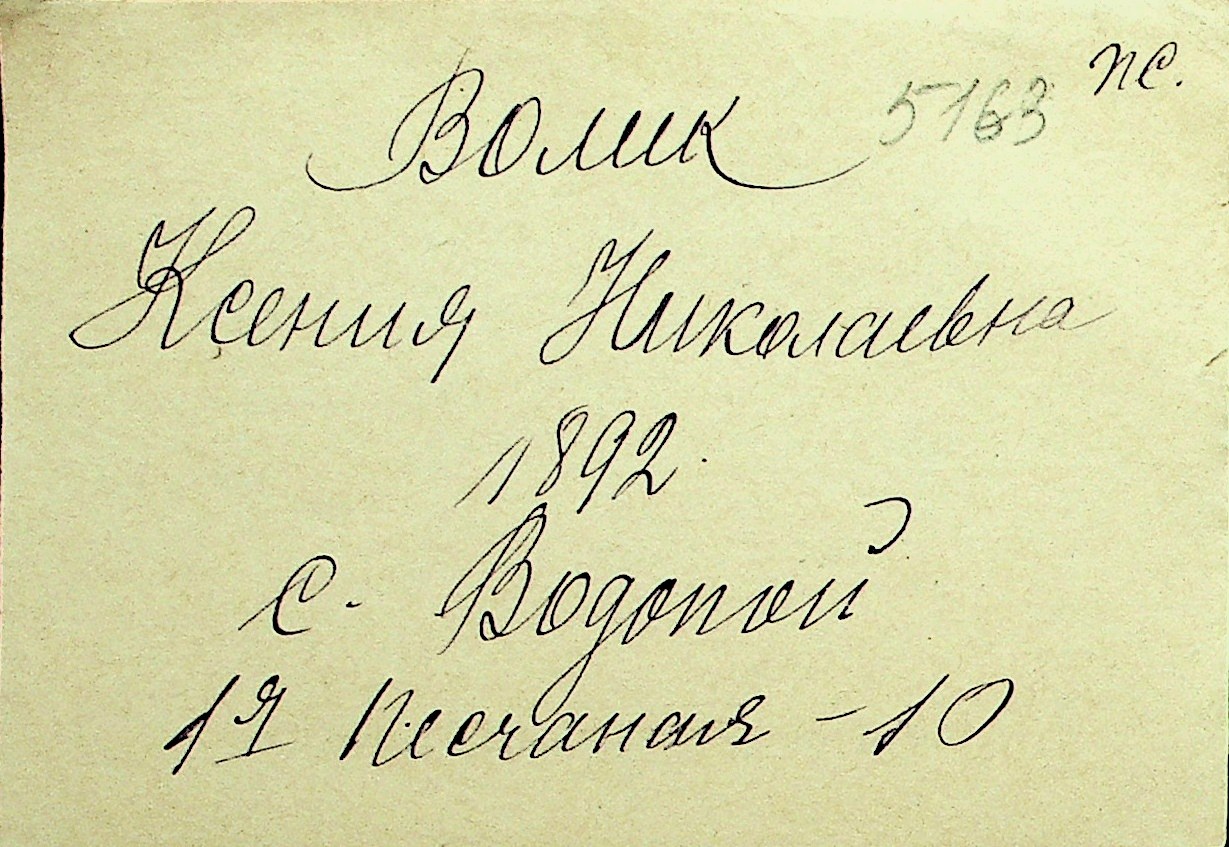 пс.
5163
Волик
Ксения Николаевна
1892.
с. Водопой
1я Песчаная - 10